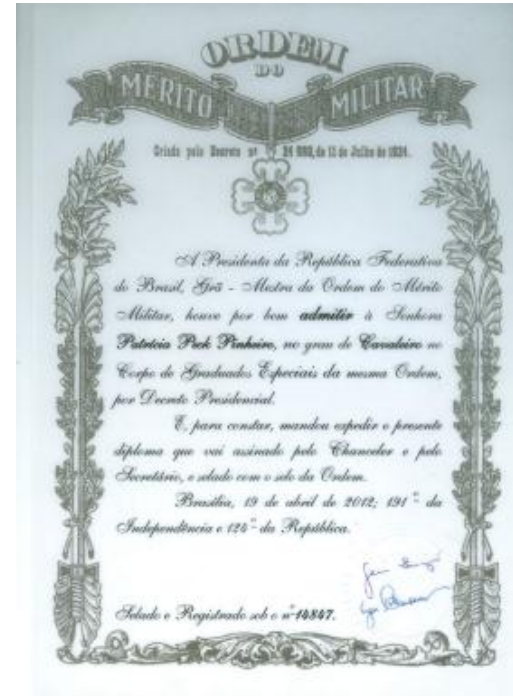 ORDEM
DO
MÉRITO MILITAR
Criada pelo Decreto nº 24 660, de 11 de Julho de 1934.
A Presidenta da República Federativa
do Brasil, Grã - Mestra da Ordem do Mérito
Militar, houve por bem admitir à Senhora
Patricia Peck Pinheiro, no grau de Cavaleiro no
Corpo de Graduados Especiais da mesma Ordem,
por Decreto Presidencial.
E, para constar, mandou expedir o presente
diploma que vai assinado pelo Chanceler e pelo
Secretário, e selado com o selo da Ordem.
Brasília, 19 de abril de 2012; 191º da
Independência e 124º da República.
Selado e Registrado sob o nº 14847.